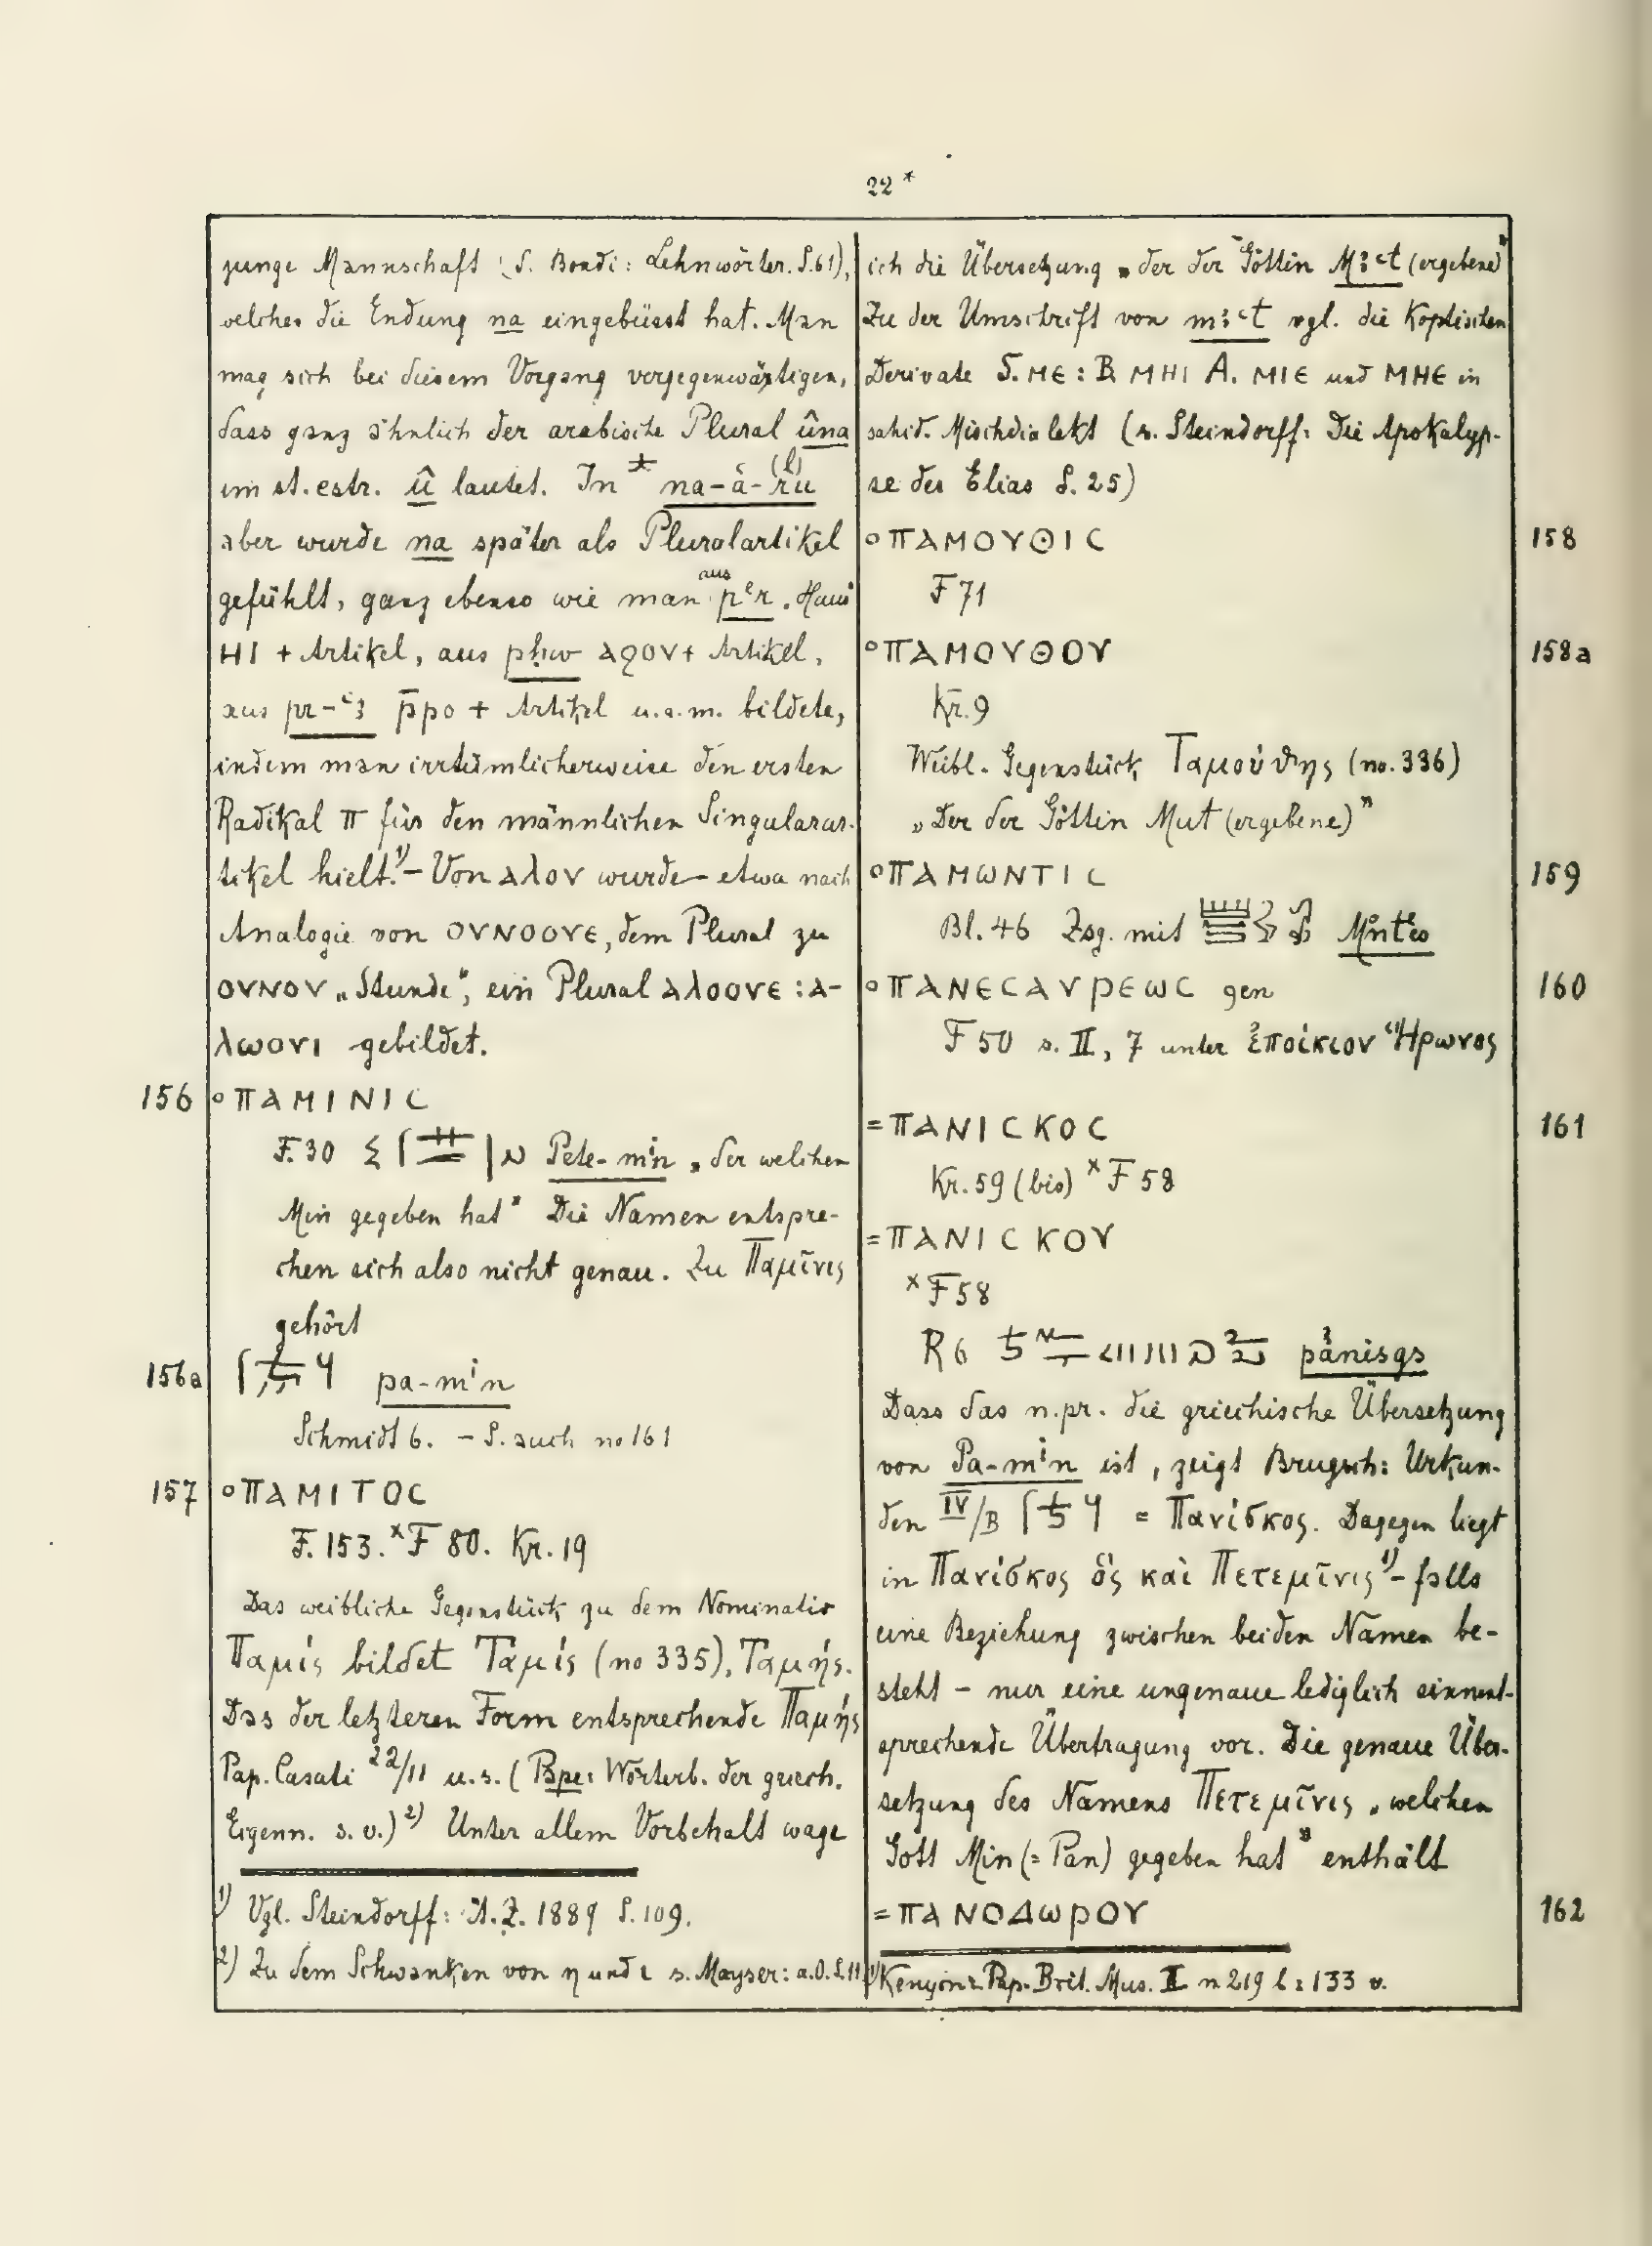 22*
junge Mannschaft (S. Bondi: Lehnwörter. S.61),
welches die Endung na eingebüsst hat. Man
mag sich bei diesem Vorgang vergegenwärtigen,
dass ganz ähnlich der arabische Plural ûna
im st. cstr. û lautet. In * na-ʿa-ru (l)
aber wurde na später als Pluralartikel
gefühlt, ganz ebenso wie man aus pʿr. Haus
ΗΙ + Artikel, aus pḥw ⲁϩⲟⲩ + Artikel,
aus pr-ʿꜣ p̄ⲣⲟ + Artikel u.a.m. bildete,
indem man irrtümlicherweise den ersten
Radikal π für den männlichen Singularar-
tikel hielt.¹⁾ – Von ⲁⲗⲟⲩ wurde – etwa nach
Analogie von ⲟⲩⲛⲟⲟⲩⲉ, dem Plural zu
ⲟⲩⲛⲟⲩ „Stunde“, ein Plural ⲁⲗⲟⲟⲩⲉ : ⲁ-
ⲗⲱⲟⲩⲓ gebildet.
156 °ΠΑΜΙΝΙC
F. 30 Pete-min „der welchen
Min gegeben hat“ Die Namen entspre-
chen sich also nicht genau. Zu Παμῖνις
gehört
156a pa-min
Schmidt 6. – S. auch no 161
157 °ΠΑΜΙΤΟC
F. 153. ˣF 80. Kr. 19
Das weibliche Gegenstück zu dem Nominativ
Παμίς bildet Ταμίς (no 335), Ταμής.
Das der letzteren Form entsprechende Παμής
Pap. Casati 22/11 u.s. (Pape: Wörterb. der griech.
Eigenn. s. v.)²⁾ Unter allem Vorbehalt wage
1) Vgl. Steindorff: Ä.Z. 1889 S. 109.
2) Zu dem Schwanken von η und ι s. Mayser: a.O. S. 11
ich die Übersetzung „der der Göttin Mꜣʿt (ergebene)“
Zu der Umschrift von mꜣʿt vgl. die Koptischen
Derivate S. ⲙⲉ : B ⲙⲏⲓ A. ⲙⲓⲉ und ⲙⲏⲉ in
sahid. Mischdialekt (s. Steindorff: Die Apokalyp-
se des Elias S. 25)
°ΠΑΜΟΥΘΙC 158
F 71
°ΠΑΜΟΥΘΟΥ 158a
Kr. 9
Weibl. Gegenstück Ταμούθης (no. 336)
„Der der Göttin Mut (ergebene)“
°ΠΑΜωΝΤΙC 159
Bl. 46 Zsg. mit
°ΠΑΝΕCΑΥΡΕωC gen 160
F 50 s. II, 7 unter ἐποίκιον Ἥρωνος
=ΠΑΝΙCΚΟC 161
Kr. 59 (bis) ˣF 58
=ΠΑΝΙCΚΟΥ
ˣF 58
R 6 pꜣnisgs
Dass das n.pr. die griechische Übersetzung
von Pa-min ist, zeigt Brugsch: Urkun-
den IV/B = Πανίσκος. Dagegen liegt
in Πανίσκος ὅς καὶ Πετεμῖνις¹⁾ – falls
eine Beziehung zwischen beiden Namen be-
steht – nur eine ungenaue lediglich sinnent-
sprechende Übertragung vor. Die genaue Über-
setzung des Namens Πετεμῖνις „welchen
Gott Min (= Pan) gegeben hat“ enthält
=ΠΑΝΟΔωΡΟΥ 162
1) Kenyon: Pap. Brit. Mus. II n 219 l: 133 v.